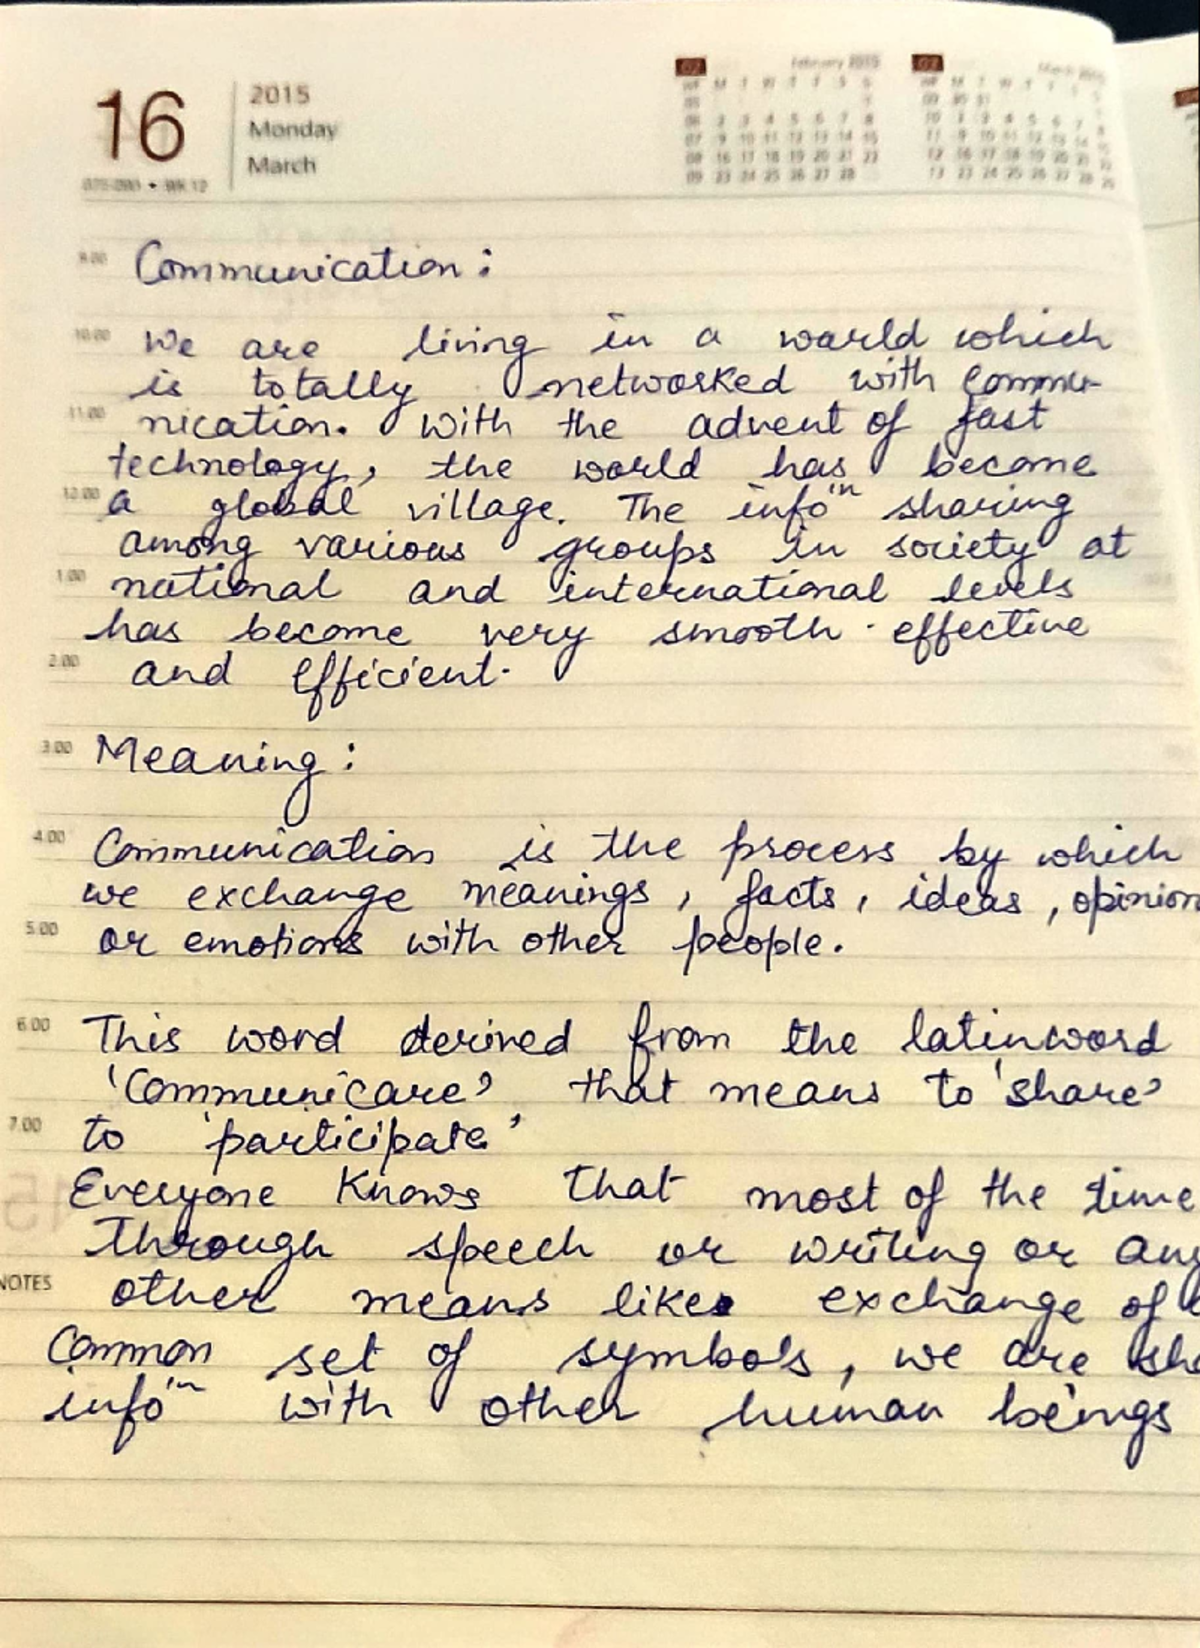 16
2015
Monday
March
075-290 • WK 12
February 2015
March 2015
9.00 Communication :
10.00 We are living in a world which
is totally networked with commu-
11.00 nication. With the advent of fast
technology, the world has become
12.00 a global village. The infoⁱⁿ sharing
among various groups in society at
1.00 national and international levels
has become very smooth . effective
2.00 and efficient.
3.00 Meaning :
4.00 Communication is the process by which
we exchange meanings , facts , ideas , opinion
5.00 or emotions with other people.
6.00 This word derived from the latinword
'Communicare' that means to 'share'
7.00 to 'participate'
Everyone knows that most of the time
Through speech or writing or any
NOTES other means like exchange of
Common set of symbols , we are
infoⁱⁿ with other human beings